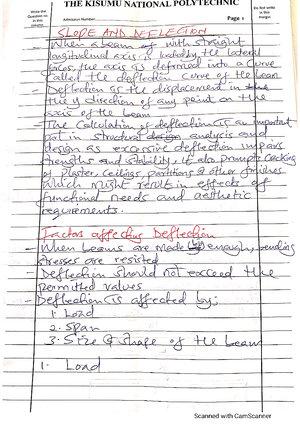 THE KISUMU NATIONAL POLYTECHNIC
Write the Question in this column
Admission Number
Page 1
Do not write in this margin
SLOPE AND DEFLECTION
- When a beam with straight
longitudinal axis is loaded by the lateral
forces the axis is deformed into a curve
called the deflection curve of the beam
- Deflection is the displacement in the
the y direction of any point on the
axis of the beam
- The calculation of deflection is an important
part in structural design analysis and
design as excessive deflection impairs
strengths and stability. It also prompts cracking
of plaster ceilings, partitions & other finishes
which might results in effects of
functional needs and aesthetic
requirements.
Factors affecting Deflection
- When beams are made big enough, bending
stresses are resisted
- Deflection should not exceed the
permitted values
- Deflection is affected by:
1. Load
2. Span
3. Size & shape of the beam
1. Load
Scanned with CamScanner